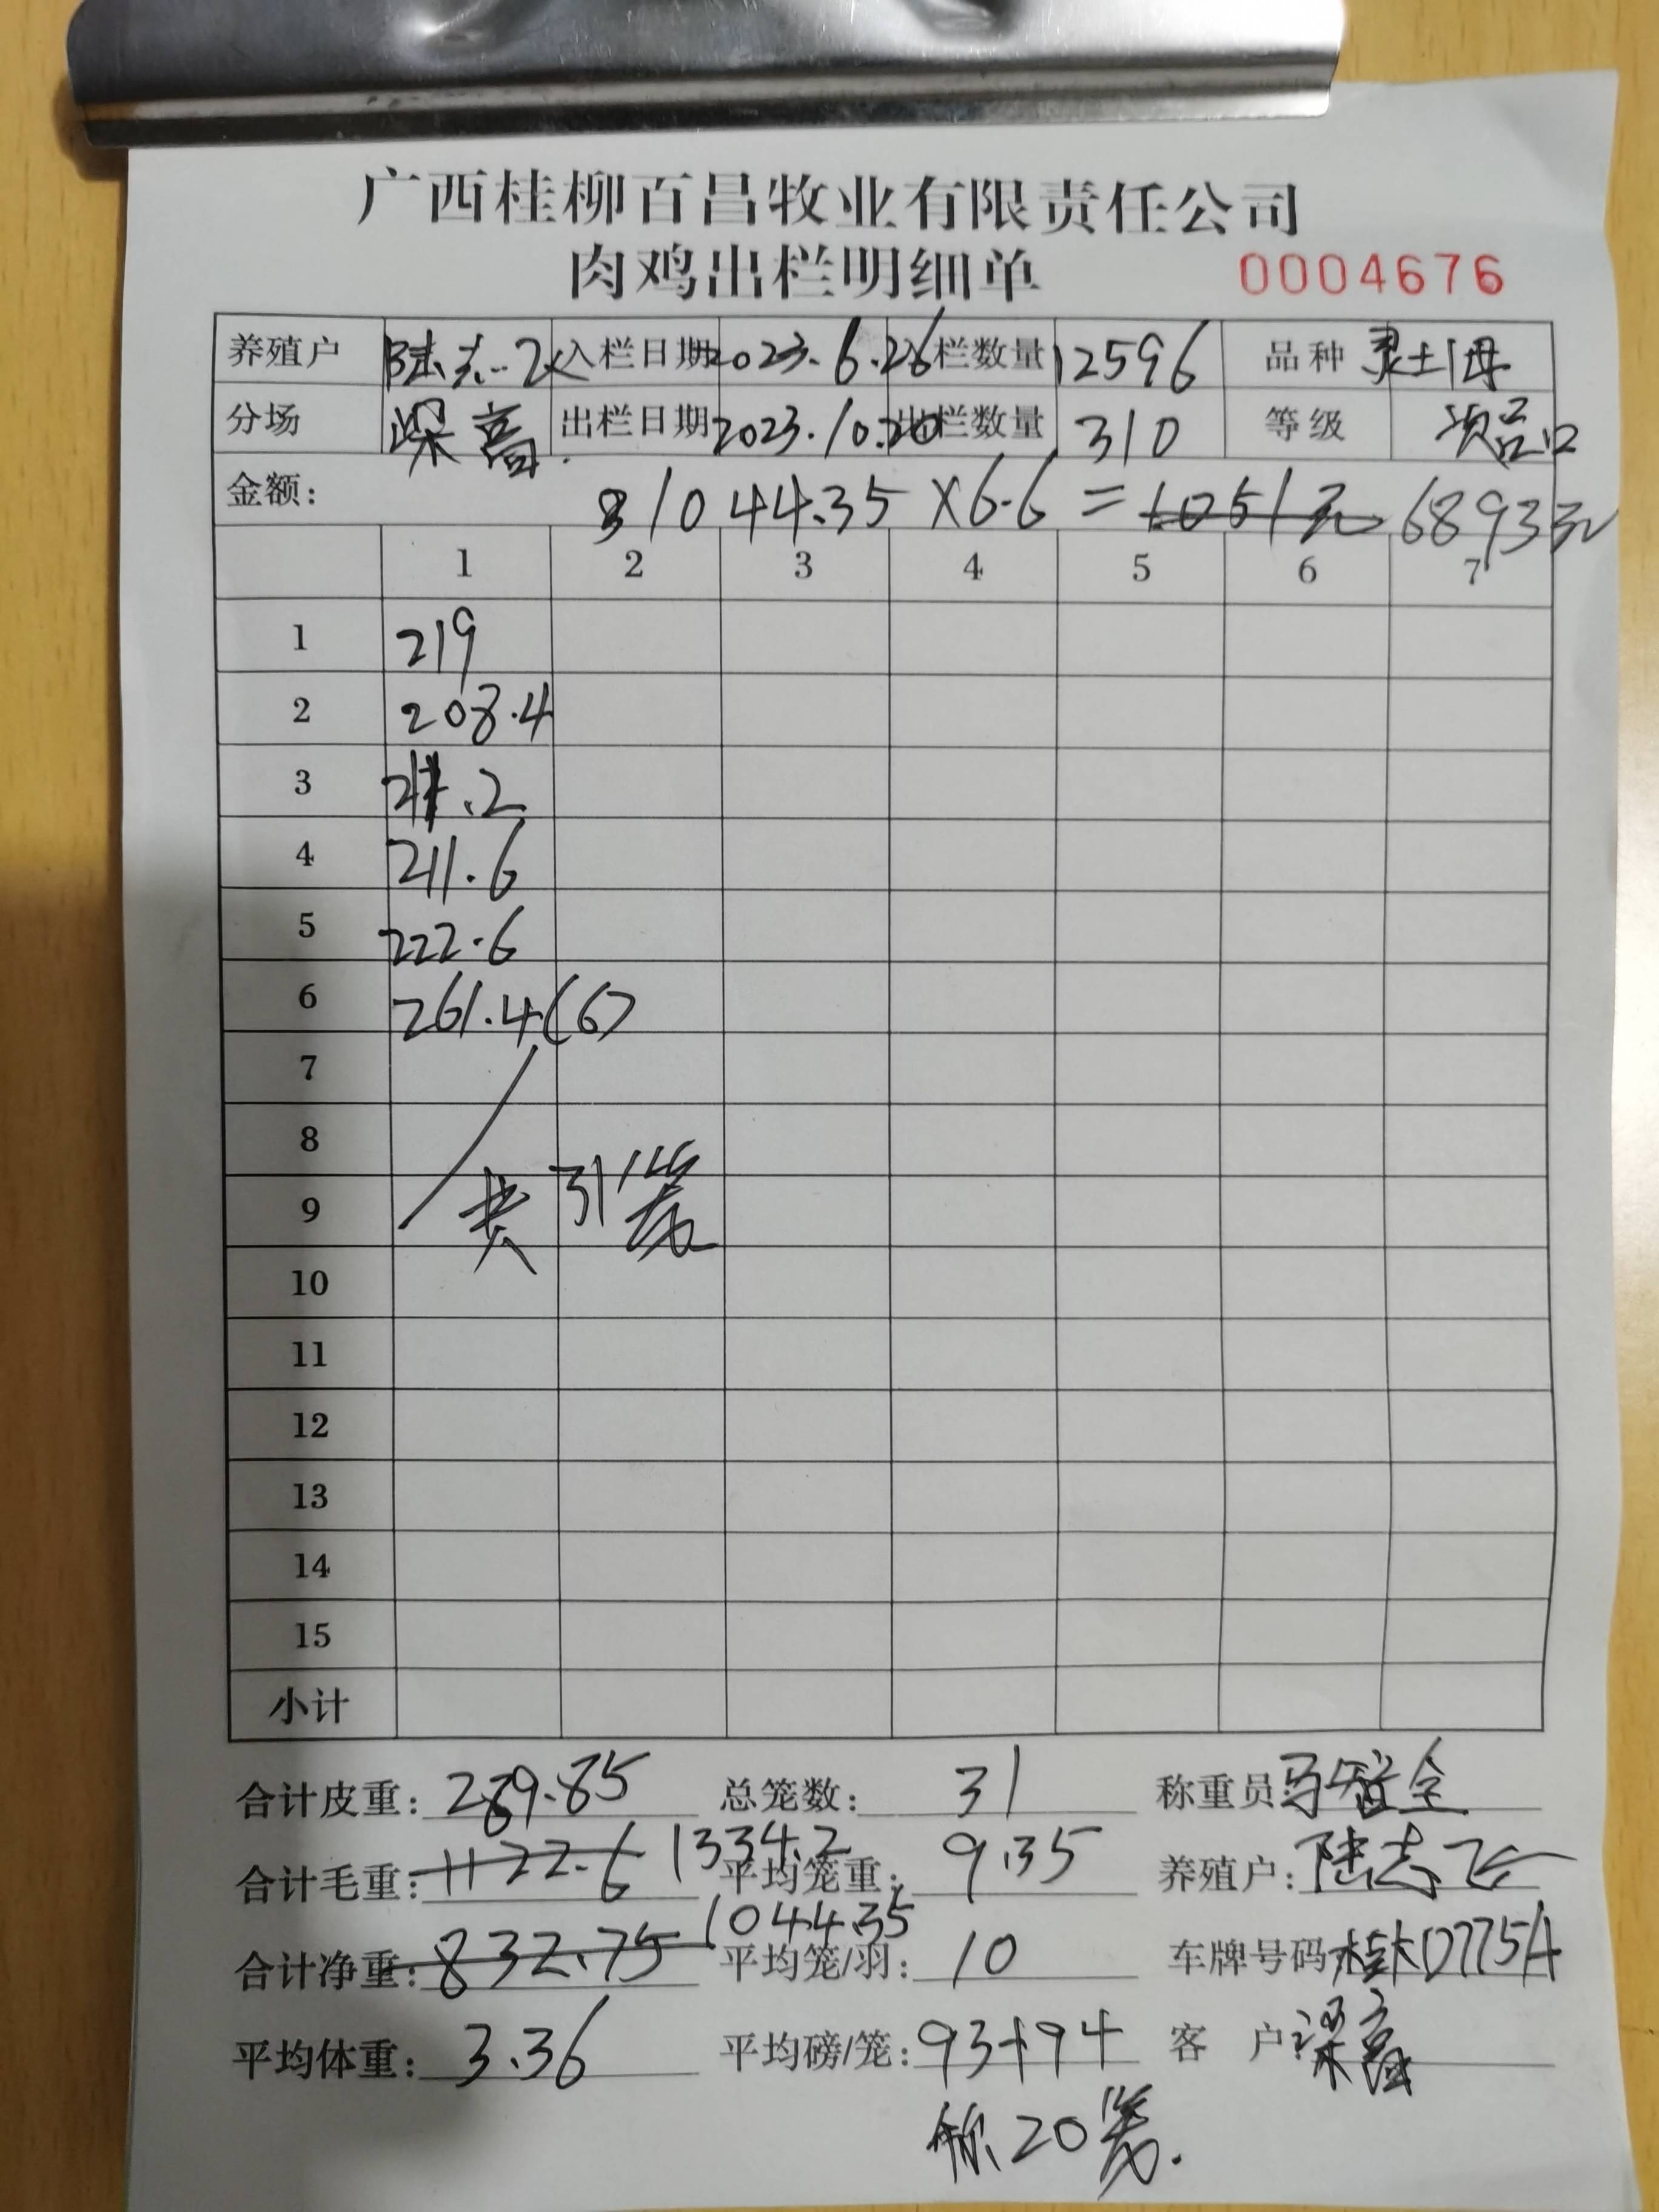 广西桂柳百昌牧业有限责任公司
肉鸡出栏明细单 0004676
养殖户 陆志飞 入栏日期 2023.6.26 栏数量 12596 品种 灵土1母
分场 梁高 出栏日期 2023.10.20 出栏数量 310 等级
金额: 31044.35×6.6=1051元 6893元
1 2 3 4 5 6 7
1 219
2 208.4
3 211.2
4 211.6
5 222.6
6 261.4(6)
7
8
9 共31笼
10
11
12
13
14
15
小计
合计皮重: 289.85 总笼数: 31 称重员 马智全
合计毛重: 1122.6 1334.2 平均笼重: 9.35 养殖户: 陆志飞
合计净重: 832.75 1044.35 平均笼/羽: 10 车牌号码 桂KD775A
平均体重: 3.36 平均磅/笼: 93+94 客 户: 梁高
称20笼.